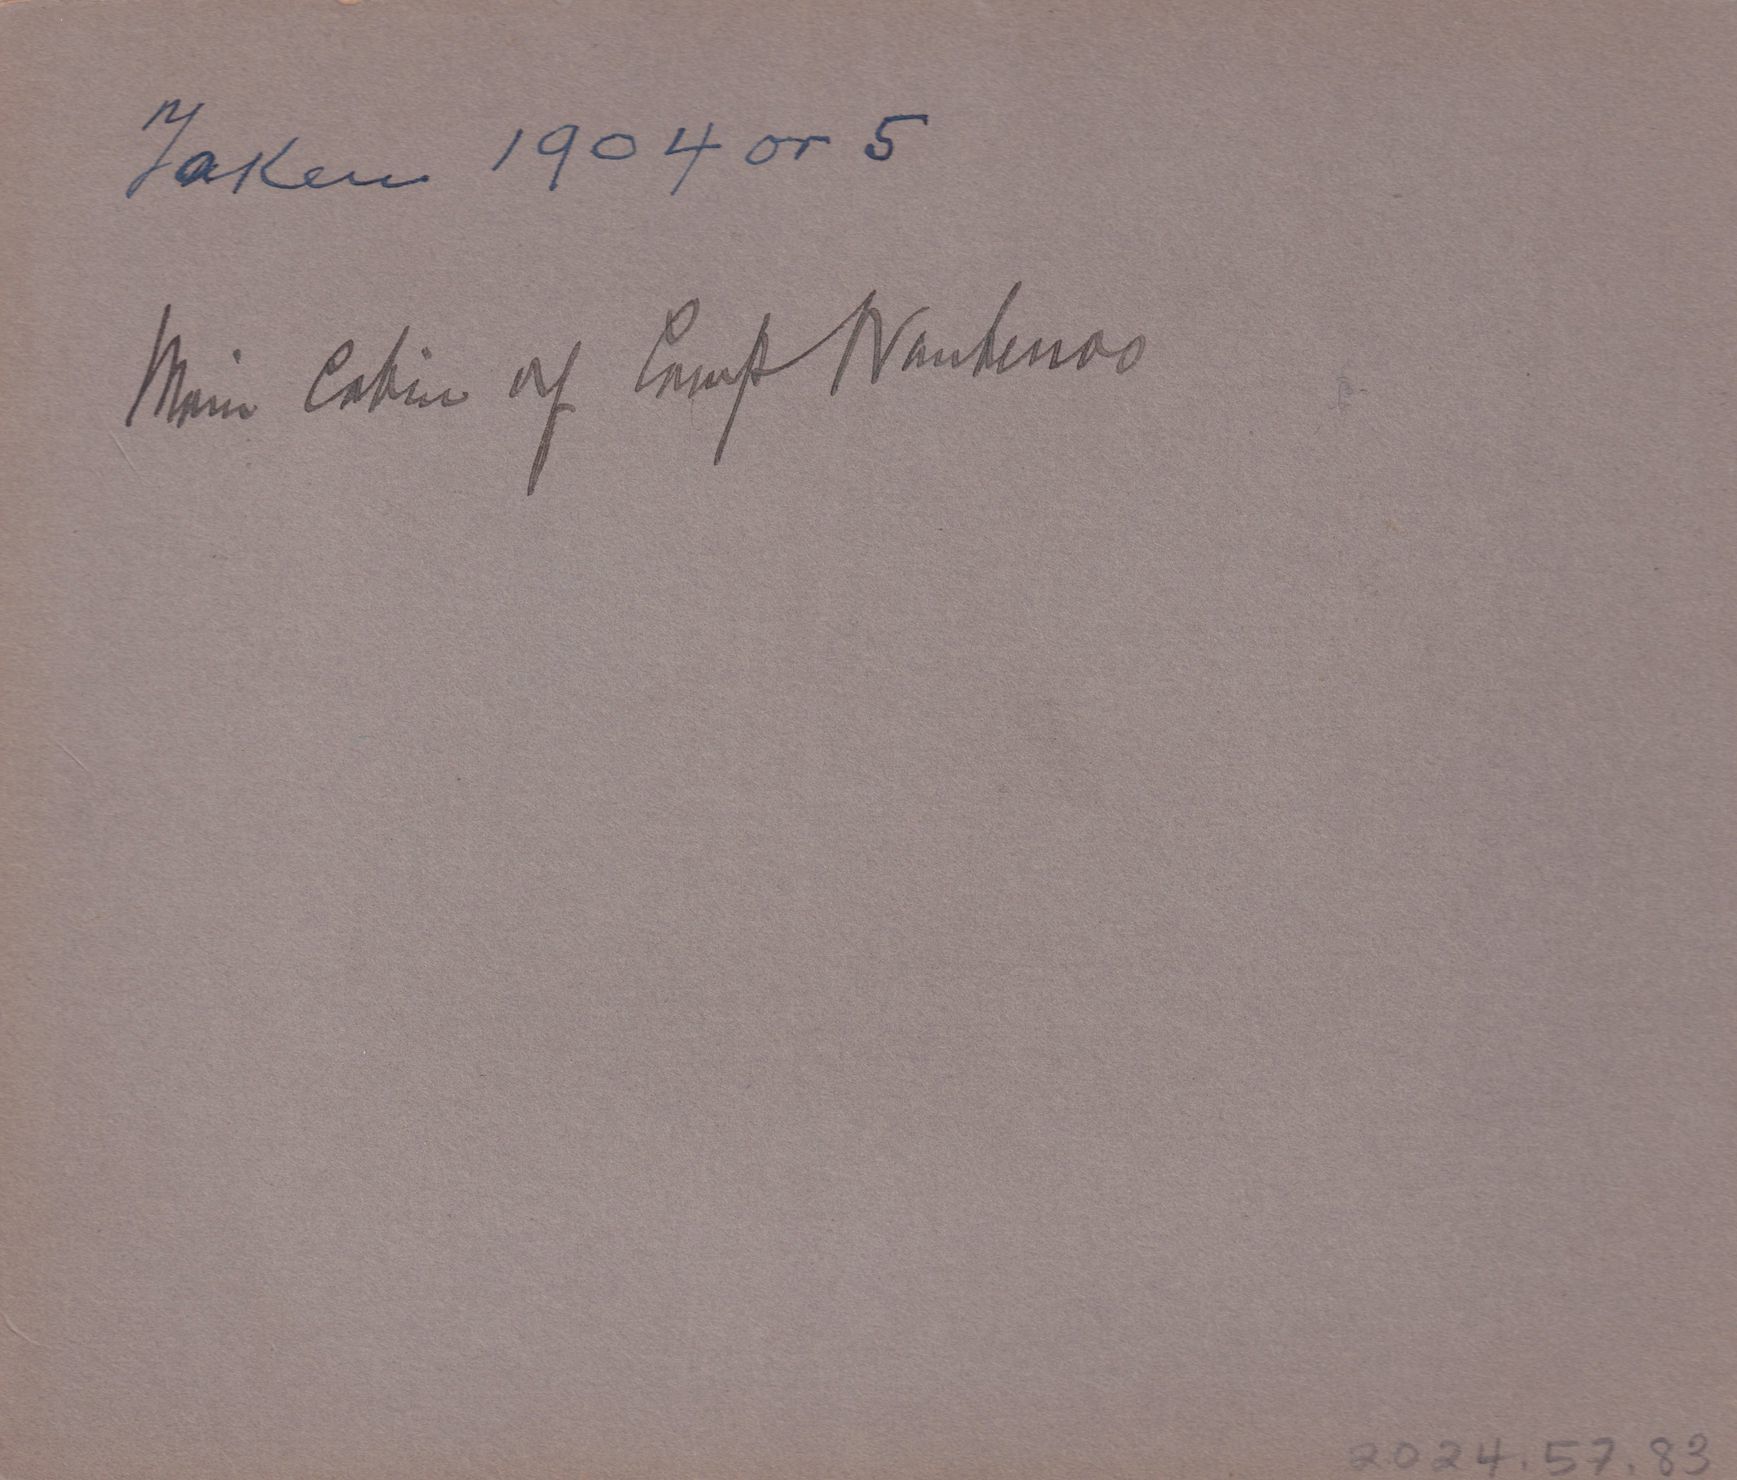 Taken 1904 or 5
Main Cabin of Camp Waubenoo
2024.57.83